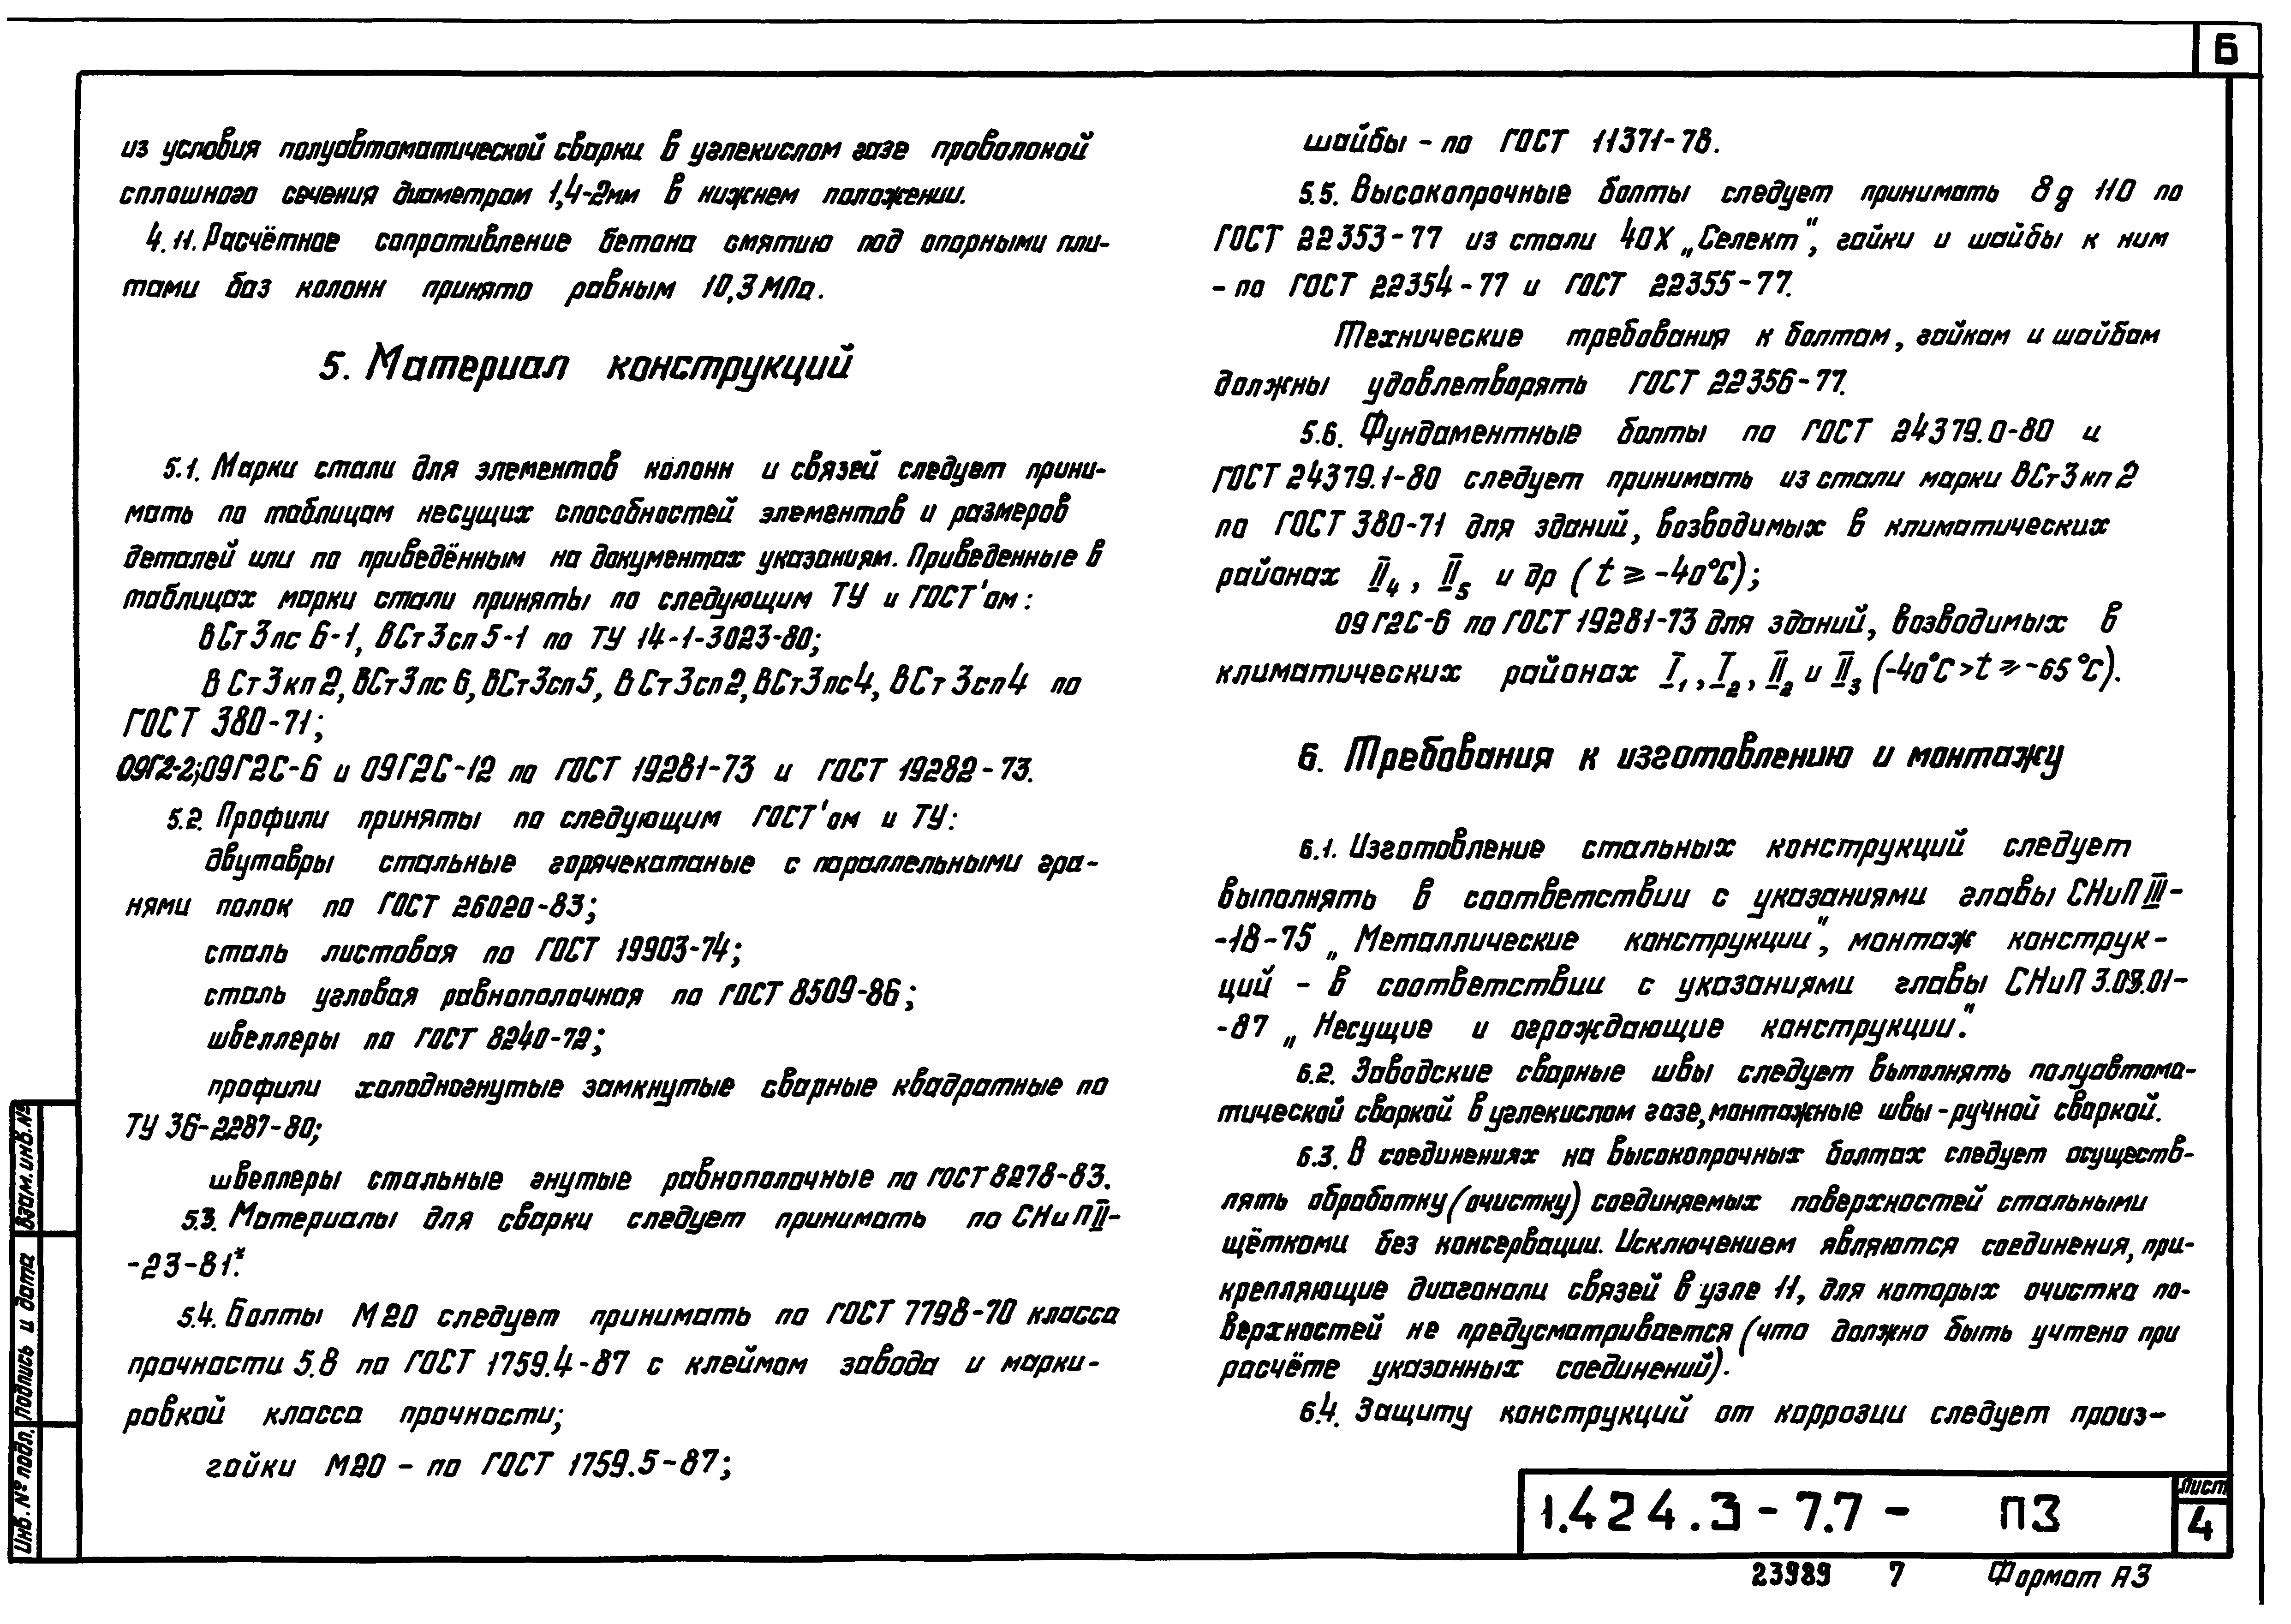 6
из условия полуавтоматической сварки в углекислом газе проволокой
сплошного сечения диаметром 1,4-2мм в нижнем положении.
4.11. Расчётное сопротивление бетона смятию под опорными пли-
тами баз колонн принято равным 10,3 МПа.
5. Материал конструкций
5.1. Марки стали для элементов колонн и связей следует прини-
мать по таблицам несущих способностей элементов и размеров
деталей или по приведённым на документах указаниям. Приведенные в
таблицах марки стали приняты по следующим ТУ и ГОСТ'ам:
ВСт3пс 6-1, ВСт3сп 5-1 по ТУ 14-1-3023-80;
ВСт3кп2, ВСт3пс 6, ВСт3сп5, ВСт3сп2, ВСт3пс4, ВСт3сп4 по
ГОСТ 380-71;
09Г2-2; 09Г2С-6 и 09Г2С-12 по ГОСТ 19281-73 и ГОСТ 19282-73.
5.2. Профили приняты по следующим ГОСТ'ам и ТУ:
двутавры стальные горячекатаные с параллельными гра-
нями полок по ГОСТ 26020-83;
сталь листовая по ГОСТ 19903-74;
сталь угловая равнополочная по ГОСТ 8509-86;
швеллеры по ГОСТ 8240-72;
профили холодногнутые замкнутые сварные квадратные по
ТУ 36-2287-80;
швеллеры стальные гнутые равнополочные по ГОСТ 8278-83.
5.3. Материалы для сварки следует принимать по СНиП II-
-23-81*.
5.4. Болты М20 следует принимать по ГОСТ 7798-70 класса
прочности 5.8 по ГОСТ 1759.4-87 с клеймом завода и марки-
ровкой класса прочности;
гайки М20 - по ГОСТ 1759.5-87;
шайбы - по ГОСТ 11371-78.
5.5. Высокопрочные болты следует принимать 8g 110 по
ГОСТ 22353-77 из стали 40Х „Селект", гайки и шайбы к ним
- по ГОСТ 22354-77 и ГОСТ 22355-77.
Технические требования к болтам, гайкам и шайбам
должны удовлетворять ГОСТ 22356-77.
5.6. Фундаментные болты по ГОСТ 24379.0-80 и
ГОСТ 24379.1-80 следует принимать из стали марки ВСт3кп2
по ГОСТ 380-71 для зданий, возводимых в климатических
районах II₄, II₅ и др (t ⩾ -40°С);
09Г2С-6 по ГОСТ 19281-73 для зданий, возводимых в
климатических районах I₁, I₂, II₂ и II₃ (-40°С > t ⩾ -65°С).
6. Требования к изготовлению и монтажу
6.1. Изготовление стальных конструкций следует
выполнять в соответствии с указаниями главы СНиП III-
-18-75 „Металлические конструкции", монтаж конструк-
ций - в соответствии с указаниями главы СНиП 3.03.01-
-87 „Несущие и ограждающие конструкции".
6.2. Заводские сварные швы следует выполнять полуавтома-
тической сваркой в углекислом газе, монтажные швы - ручной сваркой.
6.3. В соединениях на высокопрочных болтах следует осуществ-
лять обработку (очистку) соединяемых поверхностей стальными
щётками без консервации. Исключением являются соединения, при-
крепляющие диагонали связей в узле 11, для которых очистка по-
верхностей не предусматривается (что должно быть учтено при
расчёте указанных соединений).
6.4. Защиту конструкций от коррозии следует произ-
Взам. инв. №
Подпись и дата
Инв. № подл.
1.424.3-7.7- ПЗ
Лист
4
23989 7 Формат А3